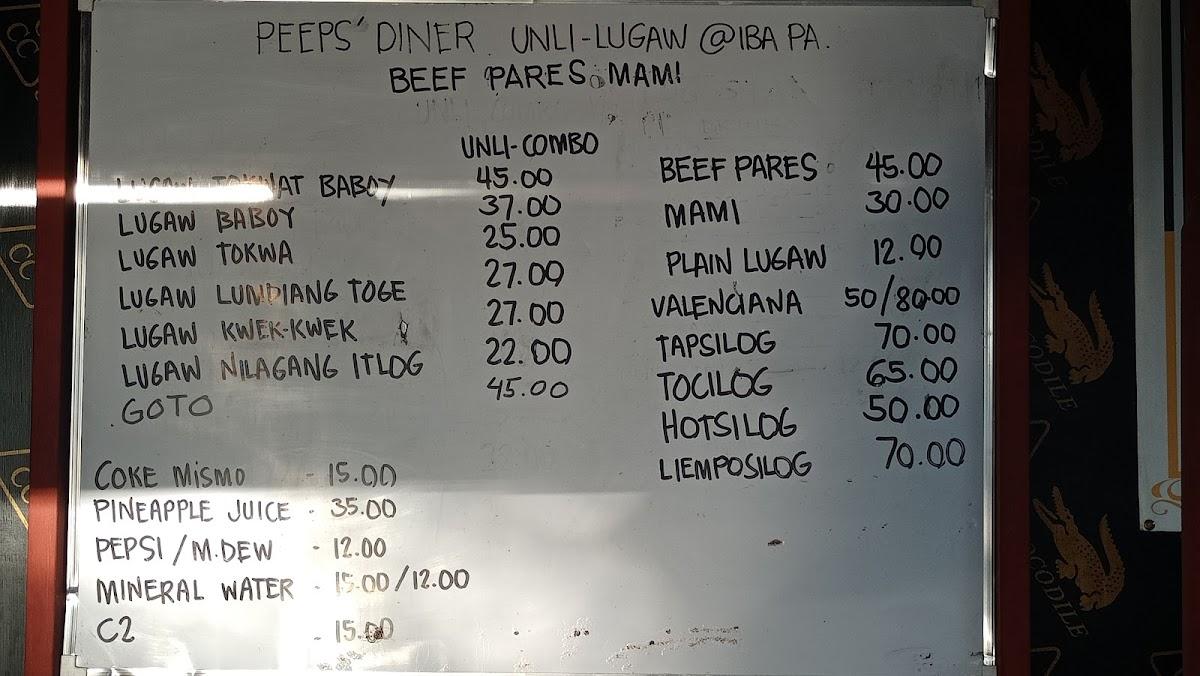 PEEPS' DINER UNLI-LUGAW @IBA PA.
BEEF PARES MAMI
UNLI-COMBO
LUGAW TOKWAT BABOY 45.00
LUGAW BABOY 37.00
LUGAW TOKWA 25.00
LUGAW LUMPIANG TOGE 27.00
LUGAW KWEK-KWEK 27.00
LUGAW NILAGANG ITLOG 22.00
GOTO 45.00
COKE MISMO - 15.00
PINEAPPLE JUICE - 35.00
PEPSI / M.DEW - 12.00
MINERAL WATER - 15.00/12.00
C2 - 15.00
BEEF PARES 45.00
MAMI 30.00
PLAIN LUGAW 12.00
VALENCIANA 50/80.00
TAPSILOG 70.00
TOCILOG 65.00
HOTSILOG 50.00
LIEMPOSILOG 70.00
CODILE
CODILE